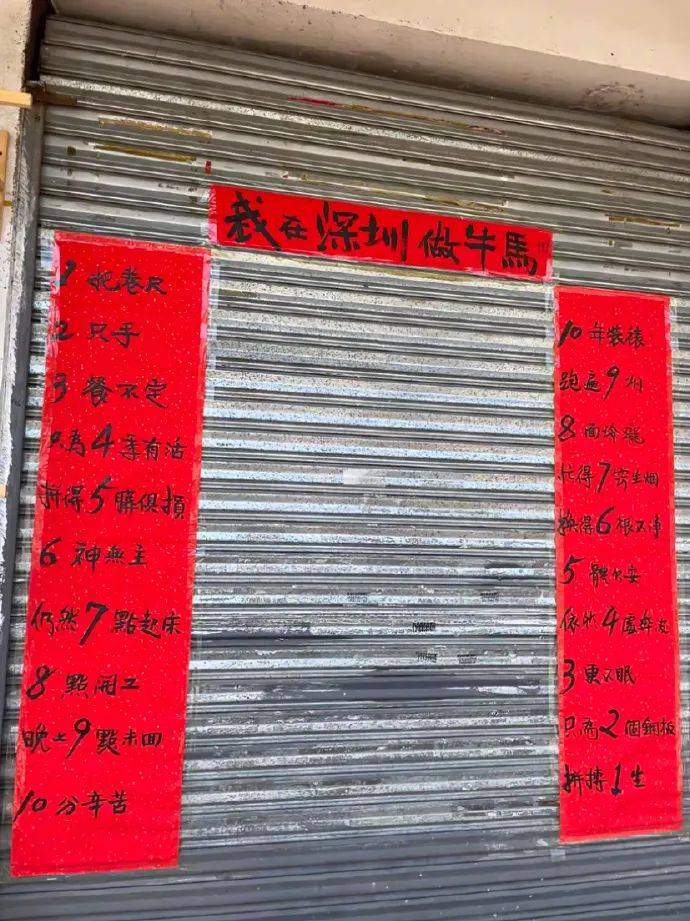 我在深圳做牛馬
1把卷尺
2只手
3餐不定
只為4季有活
拼得5臟俱損
6神無主
仍然7點起床
8點開工
晚上9點未回
10分辛苦
10年裝裱
跑遍9州
8面玲瓏
忙得7窍生烟
換得6根不净
5體欠安
依然4處奔走
3更不眠
只為2個銅板
拼搏1生